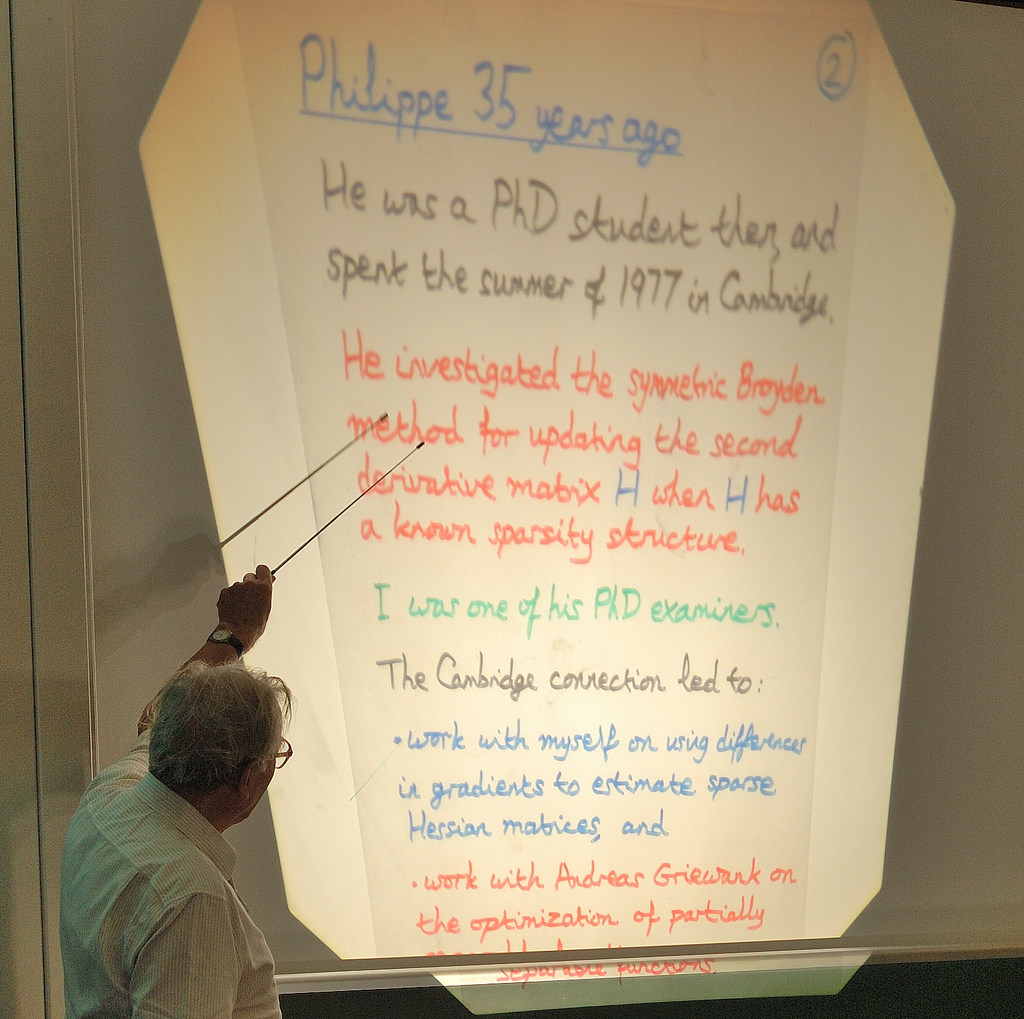 Philippe 35 years ago
②
He was a PhD student then, and
spent the summer of 1977 in Cambridge.
He investigated the symmetric Broyden
method for updating the second
derivative matrix H when H has
a known sparsity structure.
I was one of his PhD examiners.
The Cambridge connection led to:
• work with myself on using differences
in gradients to estimate sparse
Hessian matrices, and
• work with Andreas Griewank on
the optimization of partially
separable functions.